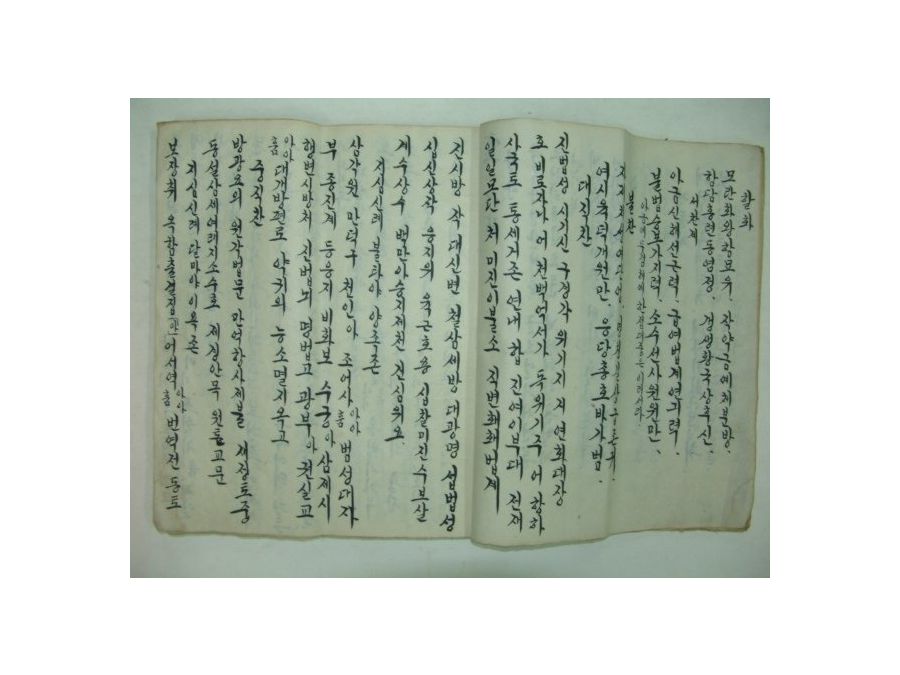 할화
모란화왕함묘유. 작약금예체분방.
함담홍련동염정. 갱생황국상후신.
서찬게
아금신해선근력. 급여법계연기력.
불법승보가지력. 소수선사원원만.
불찬
여시옥덕개원만. 응당총호바가범.
대직찬
진법성 시기신 구경각 위기지 지연화대장
호 비로자나 어 천백억서가 독위기주 어 항하
사국토 통세거존 연내 합 진여이부대 전재
일일모단 처 미진이불소 직변화화 법계
진시방 작 대신변 철삼세방 대광명 섭법성
십신상작 응지위 육근호용 십찰미진수보살
계수상수 백만아승지제천 건심위요.
지심신례 불타야 양족존
삼각원 만덕구 천인아 조어사 아아훔 범성대자
부 종진계 등응지 비화보 수궁 아 삼제시
행변시방처 진법뇌 명법고 광부 아 권실교
아아훔 대개방편로 약귀의 능소멸지옥고
중직찬
방광요의 원각법문 만억항사제불 재정토중
동설삼세여래지소수호 제경안목 원돈교문
지심신례 달마야이욕존
보장취 옥함출결집 어서역 아아훔 번역전 동토